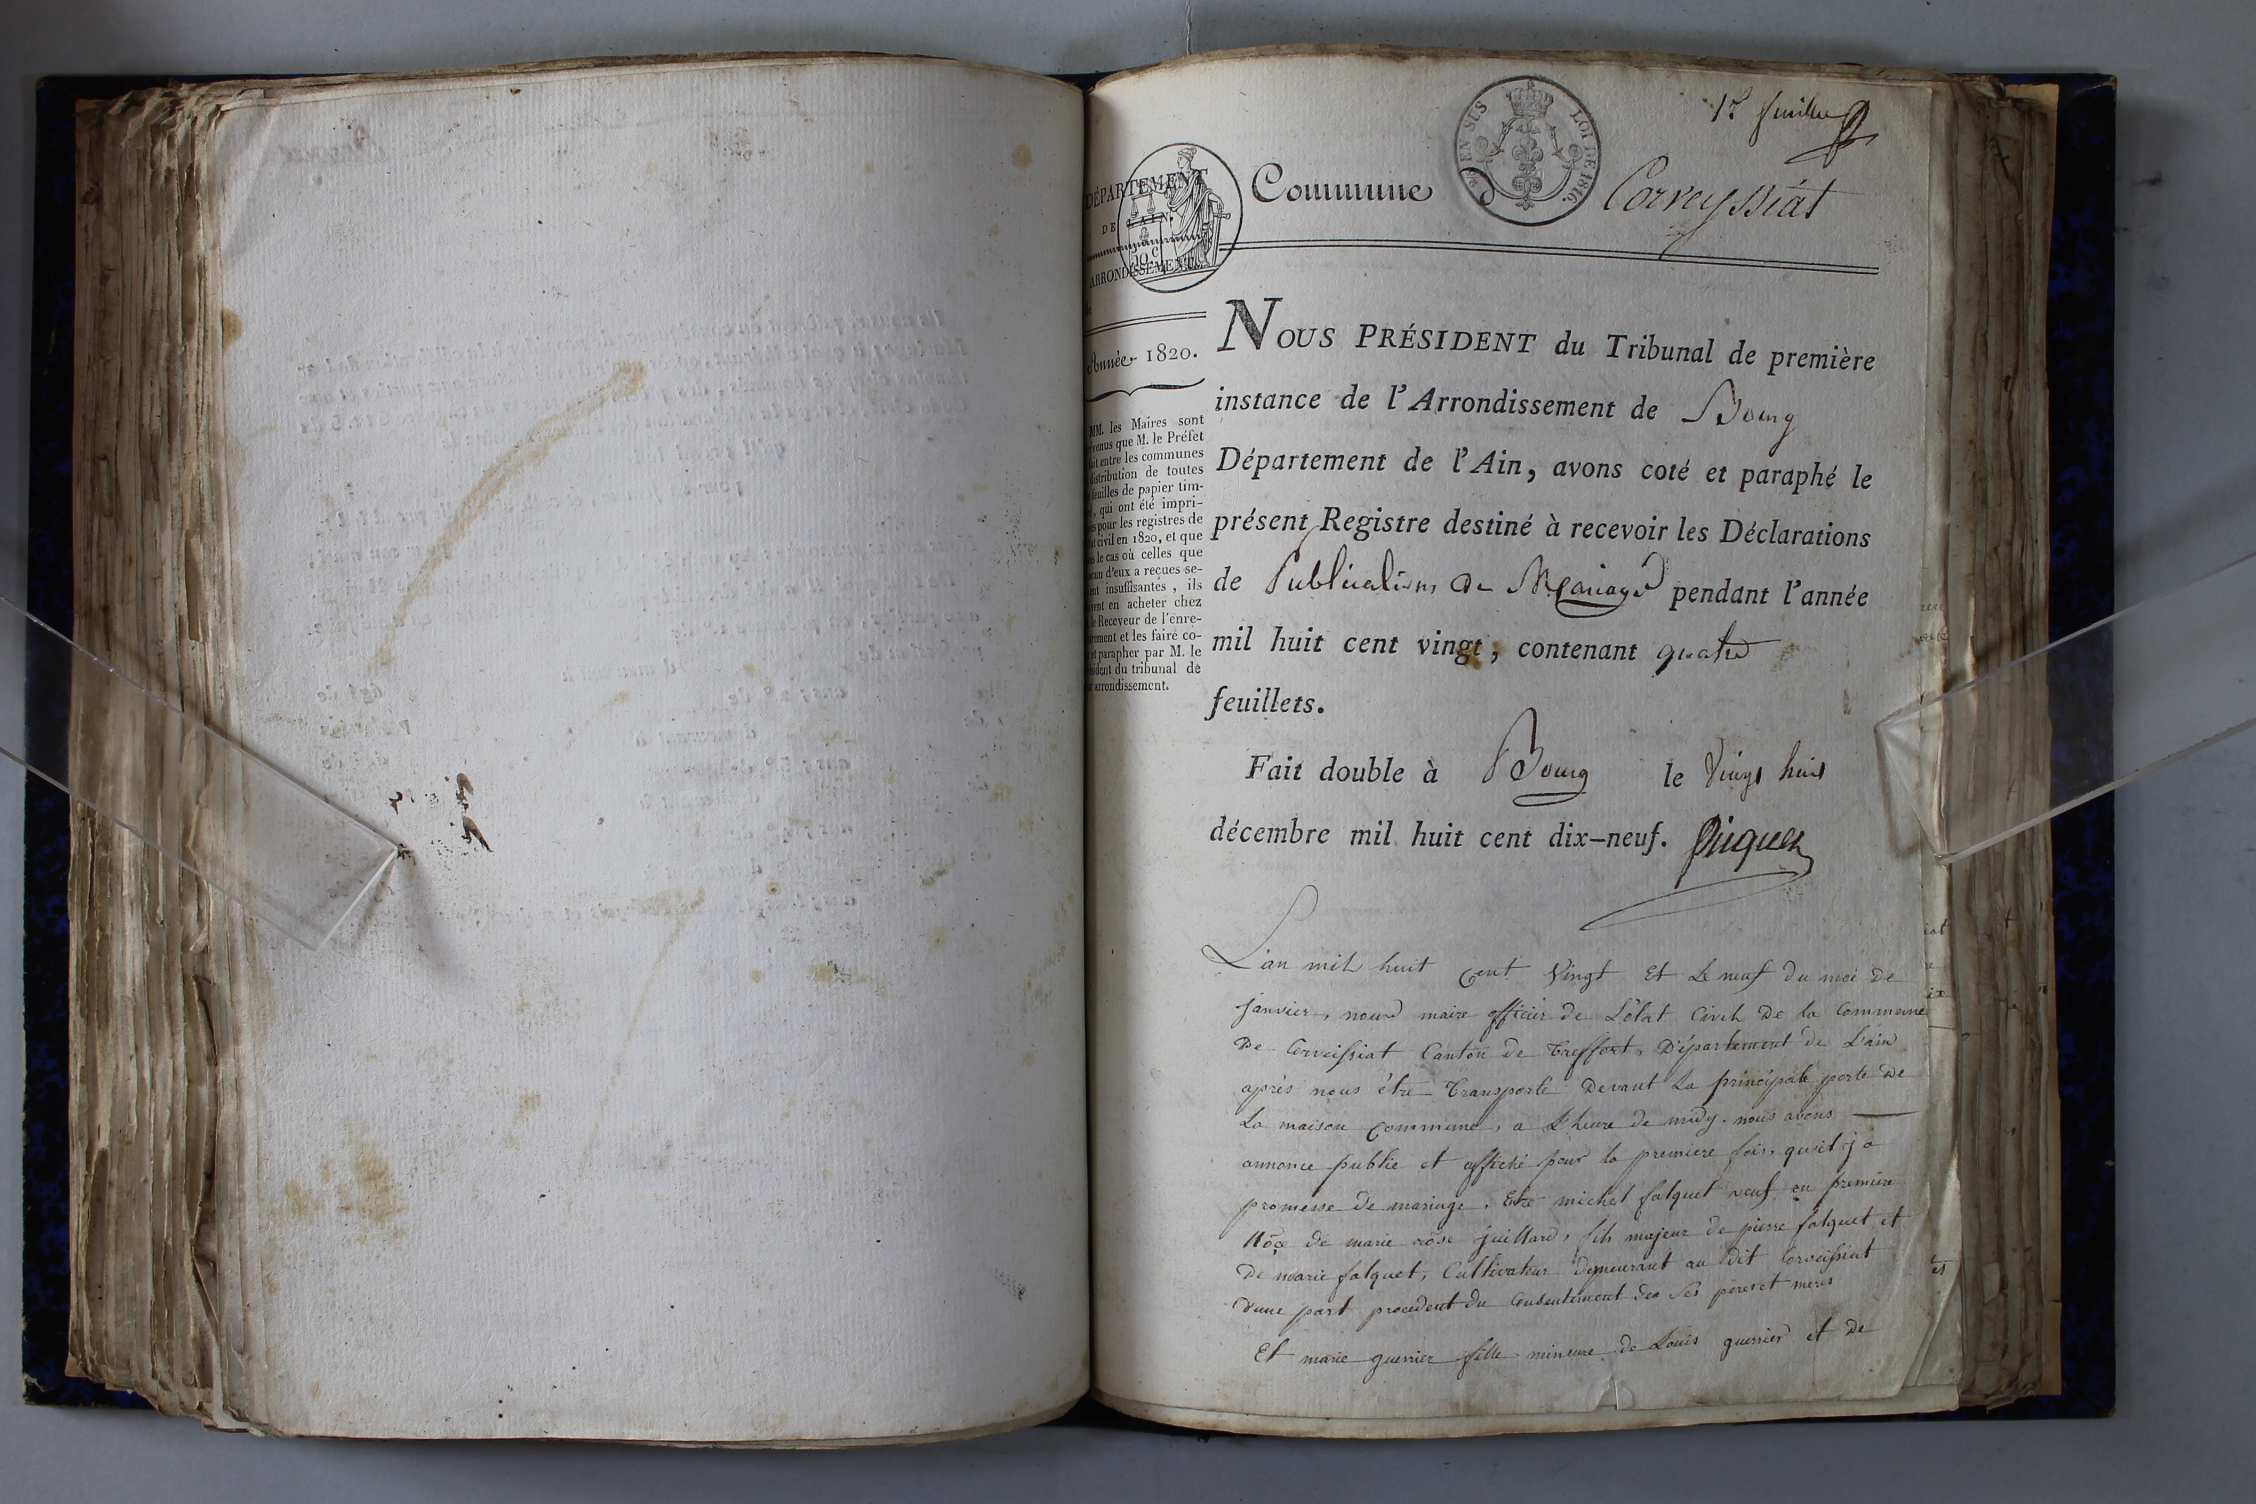 1er feuillet
EN SUS LOI DE 1816.
DÉPARTEMENT
DE
L'AIN.
10 c
ARRONDISSEMENT
Commune d Corveyssiat
Année 1820.
MM. les Maires sont
que M. le Préfet
entre les communes
distribution de toutes
feuilles de papier tim-
, qui ont été impri-
pour les registres de
civil en 1820, et que
le cas où celles que
d'eux a reçues se-
insuffisantes, ils
en acheter chez
le Receveur de l'enre-
et les faire co-
et parapher par M. le
du tribunal de
arrondissement.
NOUS PRÉSIDENT du Tribunal de première
instance de l'Arrondissement de Bourg
Département de l'Ain, avons coté et paraphé le
présent Registre destiné à recevoir les Déclarations
de Publications de Mariage pendant l'année
mil huit cent vingt, contenant quatre
feuillets.
Fait double à Bourg le vingt huit
décembre mil huit cent dix-neuf. Piquet
L'an mil huit Cent Vingt et le neuf du moi de
janvier, nous maire officier de L'état Civil de la Commune
De Corveissiat Canton de Treffort, Département de L'ain
après nous être Transporté Devant La principale porte de
La maison Commune, a L'heure de midy. nous avons
annonce publié et affiché pour la premiere fois, qu'il j a
promesse de mariage, Entre michel falquet veuf en premiere
Nôce de marie rose juillard, fils majeur de pierre falquet et
De marie falquet, Cultivateur demeurant au dit Corveissiat
D'une part procedent du Consentement des Ses peres et meres
Et marie guerrier fille mineure de Louis guerrier et de